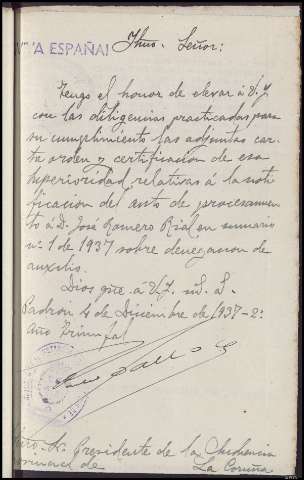 ¡VIVA ESPAÑA!
Iltmo. Señor:
Tengo el honor de elevar á V.I.
con las diligencias practicadas para
su cumplimiento las adjuntas car-
ta orden y certificación de esa
Superioridad, relativas á la noti-
ficación del auto de procesamien-
to á D. José Romero Rial en sumario
nº 1 de 1937 sobre denegacion de
auxilio.
Dios gue. a V.I. m. a.
Padron 4 de Diciembre de 1937-2º
Año Triunfal
Iltmo Sr. Presidente de la Audiencia
Provincial de La Coruña